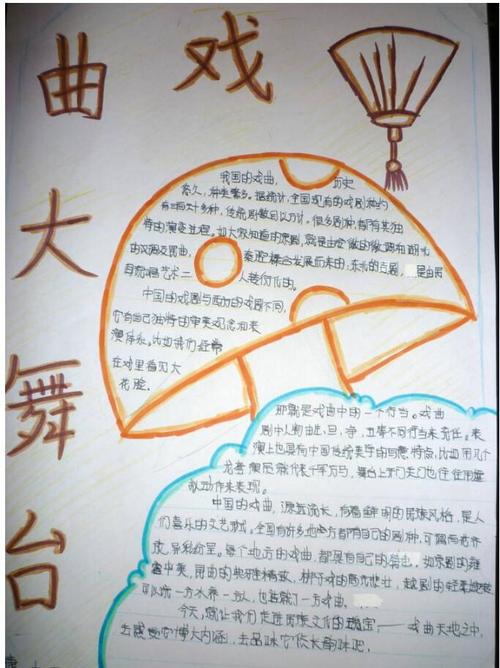 戏
曲
大
舞
台
我国的戏曲,历史
悠久,种类繁多。据统计,全国现有的戏剧种约
有三百六十多种,传统剧数目以万计。很多剧种,都有其独
特的演变过程。如大家知道的京剧,就是由安徽的徽调和湖北
的汉调及昆曲,秦腔揉合发展而来的;东北的吉剧,是由民
间歌唱艺术二人转衍化的。
中国的戏剧与西方的戏剧不同,
它有自己独特的审美观念和表
演体系。比如我们经常
在戏里看见大
花脸,
那就是戏曲中的一个行当。戏曲
剧中人物由生、旦、净、丑等不同行当来充任。表
演上也具有中国传统美学的写意特点,比如用几个
龙套演员就代表千军万马,舞台上开门关门也往往用虚
拟动作来表现。
中国的戏曲,源远流长,有着鲜明的民族风格,是人
们喜乐的文艺形式。全国有许多地方都有自己的剧种,可谓百花齐
放,异彩纷呈。每个地方的戏曲,都具有自己的特色,如京剧的雍
容华美,昆曲的典雅精致,梆子戏的高亢悲壮,越剧的轻柔婉转
可以说一方水养一方人,也造就了一方戏曲。
今天,就让我们走进民族文化的瑰宝——戏曲天地之中,
去感觉它博大内涵,去品味它悠长韵味吧。